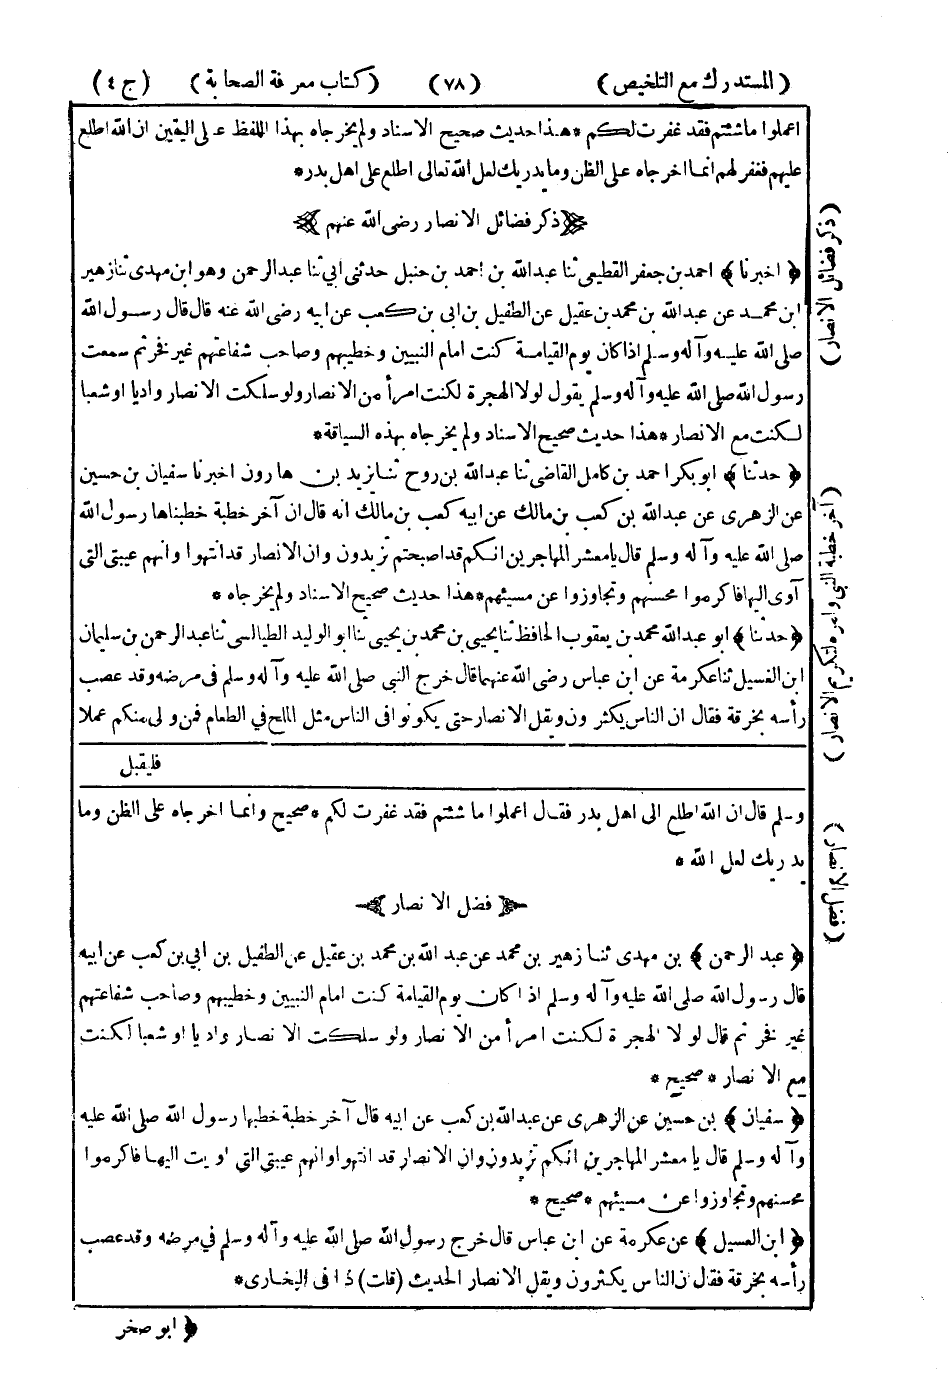 (المستدرك مع التلخيص) (٧٨) (كتاب معرفة الصحابة) (ج ٤)
اعملوا ما شئتم فقد غفرت لكم * هذا حديث صحيح الاسناد ولم يخرجاه بهذا اللفظ على اليقين ان الله اطلع
عليهم فغفر لهم انما اخرجاه على الظن وما يدريك لعل الله تعالى اطلع على اهل بدر *
ذكر فضائل الانصار رضى الله عنهم
﴿ اخبرنا ﴾ احمد بن جعفر القطيعى ثنا عبدالله بن احمد بن حنبل حدثنى ابى ثنا عبدالرحمن وهو ابن مهدى ثنا زهير
ابن محمد عن عبدالله بن محمد بن عقيل عن الطفيل بن ابى بن كعب عن ابيه رضى الله عنه قال قال رسول الله
صلى الله عليه وآله وسلم اذا كان يوم القيامة كنت امام النبيين وخطيبهم وصاحب شفاعتهم غير فخر ثم سمعت
رسول الله صلى الله عليه وآله وسلم يقول لولا الهجرة لكنت امرأ من الانصار ولو سلكت الانصار واديا او شعبا
لكنت مع الانصار * هذا حديث صحيح الاسناد ولم يخرجاه بهذه السياقة *
﴿ حدثنا ﴾ ابو بكر احمد بن كامل القاضى ثنا عبدالله بن روح ثنا يزيد بن هارون اخبرنا سفيان بن حسين
عن الزهرى عن عبدالله بن كعب بن مالك عن ابيه كعب بن مالك انه قال ان آخر خطبة خطبناها رسول الله
صلى الله عليه وآله وسلم قال يا معشر المهاجرين انكم قد اصبحتم تزيدون وان الانصار قد انتهوا وانهم عيبتى التى
آوى اليها فاكرموا محسنهم وتجاوزوا عن مسيئهم * هذا حديث صحيح الاسناد ولم يخرجاه *
﴿ حدثنا ﴾ ابو عبدالله محمد بن يعقوب الحافظ ثنا يحيى بن محمد بن يحيى ثنا ابو الوليد الطيالسى ثنا عبدالرحمن بن سليمان
ابن الغسيل ثنا عكرمة عن ابن عباس رضى الله عنهما قال خرج النبى صلى الله عليه وآله وسلم فى مرضه وقد عصب
رأسه بخرقة فقال ان الناس يكثرون ويقل الانصار حتى يكونوا فى الناس مثل الملح في الطعام فمن ولى منكم عملا
فليقبل
وسلم قال ان الله اطلع الى اهل بدر فقال اعملوا ما شئتم فقد غفرت لكم * صحيح وانما اخرجاه على الظن وما
يدريك لعل الله *
فضل الانصار
﴿ عبد الرحمن ﴾ بن مهدى ثنا زهير بن محمد عن عبد الله بن محمد بن عقيل عن الطفيل بن ابي بن كعب عن ابيه
قال رسول الله صلى الله عليه وآله وسلم اذا كان يوم القيامة كنت امام النبيين وخطيبهم وصاحب شفاعتهم
غير فخر ثم قال لو لا الهجرة لكنت امرأ من الانصار ولو سلكت الانصار واديا او شعبا لكنت
مع الانصار * صحيح *
﴿ سفيان ﴾ بن حسين عن الزهرى عن عبدالله بن كعب عن ابيه قال آخر خطبة خطبها رسول الله صلى الله عليه
وآله وسلم قال يا معشر المهاجرين انكم تزيدون وان الانصار قد انتهوا وانهم عيبتي التي اويت اليها فاكرموا
محسنهم وتجاوزوا عن مسيئهم * صحيح *
﴿ ابن الغسيل ﴾ عن عكرمة عن ابن عباس قال خرج رسول الله صلى الله عليه وآله وسلم في مرضه وقد عصب
رأسه بخرقة فقال ان الناس يكثرون ويقل الانصار الحديث (قلت) ذا فى البخارى *
﴿ ابو صخر
(ذكر فضائل الانصار)
(آخر خطبة النبى وامره لتكريم الانصار)
(فضل الانصار)